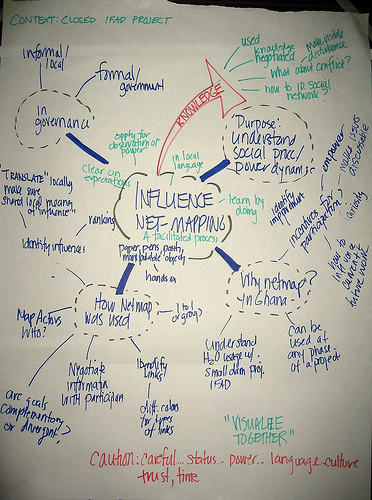 CONTEXT: CLOSED IFAD PROJECT
informal/
local
formal/
government
in
governance
used
knowledge
negotiated
make visible
disturbance
what about conflict?
how to ID social
network?
KNOWLEDGE
oppty for
observation of
power
clear on
expectations
in local
language
"Purpose:
understand
social proc/
power dynamic
empower
makes issues
accessible
curiosity
identify
important
incentives for
participation?
how to
current
future work
INFLUENCE
NET-MAPPING
A facilitated process
learn by
doing
paper, pens,
manipulatable objects
hands on
"TRANSLATE" locally
make sure
shared local meaning
of "influence"
ranking
identify influences
How Netmap
was used
1 to 1
or group?
Map Actors
WHO?
are goals
complementary
or divergent?
Negotiate
information
WITH participan
Identify
links
diff. colors
for types
of links
Why netmap?
in Ghana
Understand
H2O usage w/
small dam proj.
IFAD
Can be
used at
any phase
of a project
"VISUALIZE
TOGETHER"
Caution: careful... status... power... language culture
trust, time